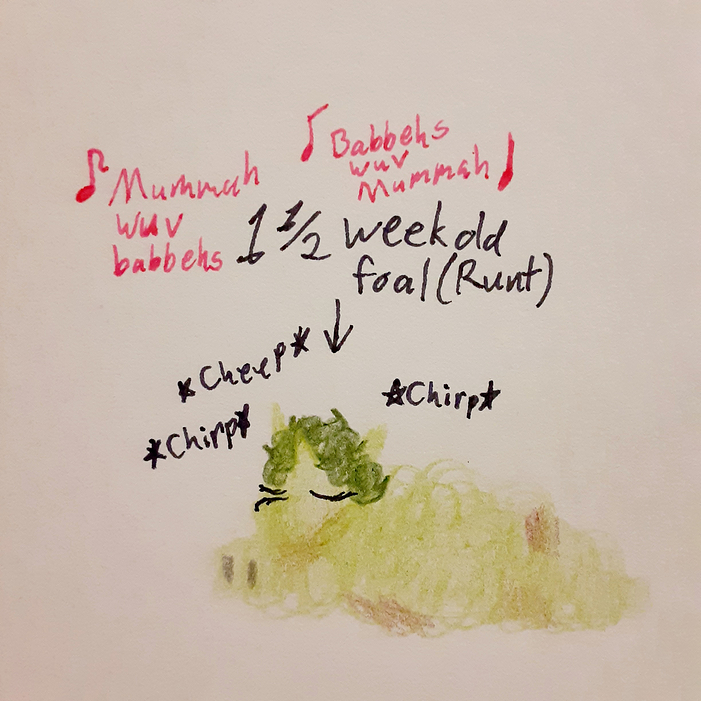 ♪ Mummah
wuv
babbehs
♪ Babbehs
wuv
Mummah ♪
1 1/2 week old
foal (Runt)
*Cheep*
*Chirp*
*Chirp*